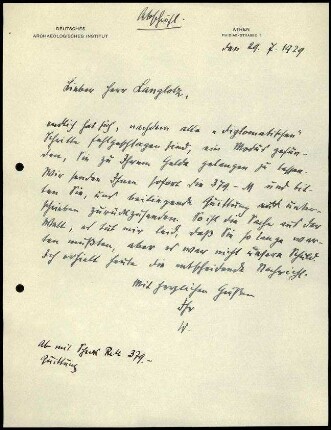 Abschrift.
DEUTSCHES
ARCHAEOLOGISCHES INSTITUT
ATHEN
PHIDIAS-STRASSE 1
den 29. 7. 1929
Lieber Herr Langlotz,
endlich hat sich, nachdem alle „diplomatischen"
Schritte fehlgeschlagen sind, ein Modus gefun-
den, Sie zu Ihrem Gelde gelangen zu lassen.
Wir senden Ihnen sofort die 379.- M und bit-
ten Sie, uns beiliegende Quittung unter-
schrieben zurückzusenden. So ist die Sache aus der
Welt, es tut mir leid, daß Sie so lange war-
ten mußten, aber es war nicht unsere Schuld
Ich erhielt heute die entscheidende Nachricht.
Mit herzlichen Grüßen
Ihr
W.
Ab mit Scheck 379.-
Quittung